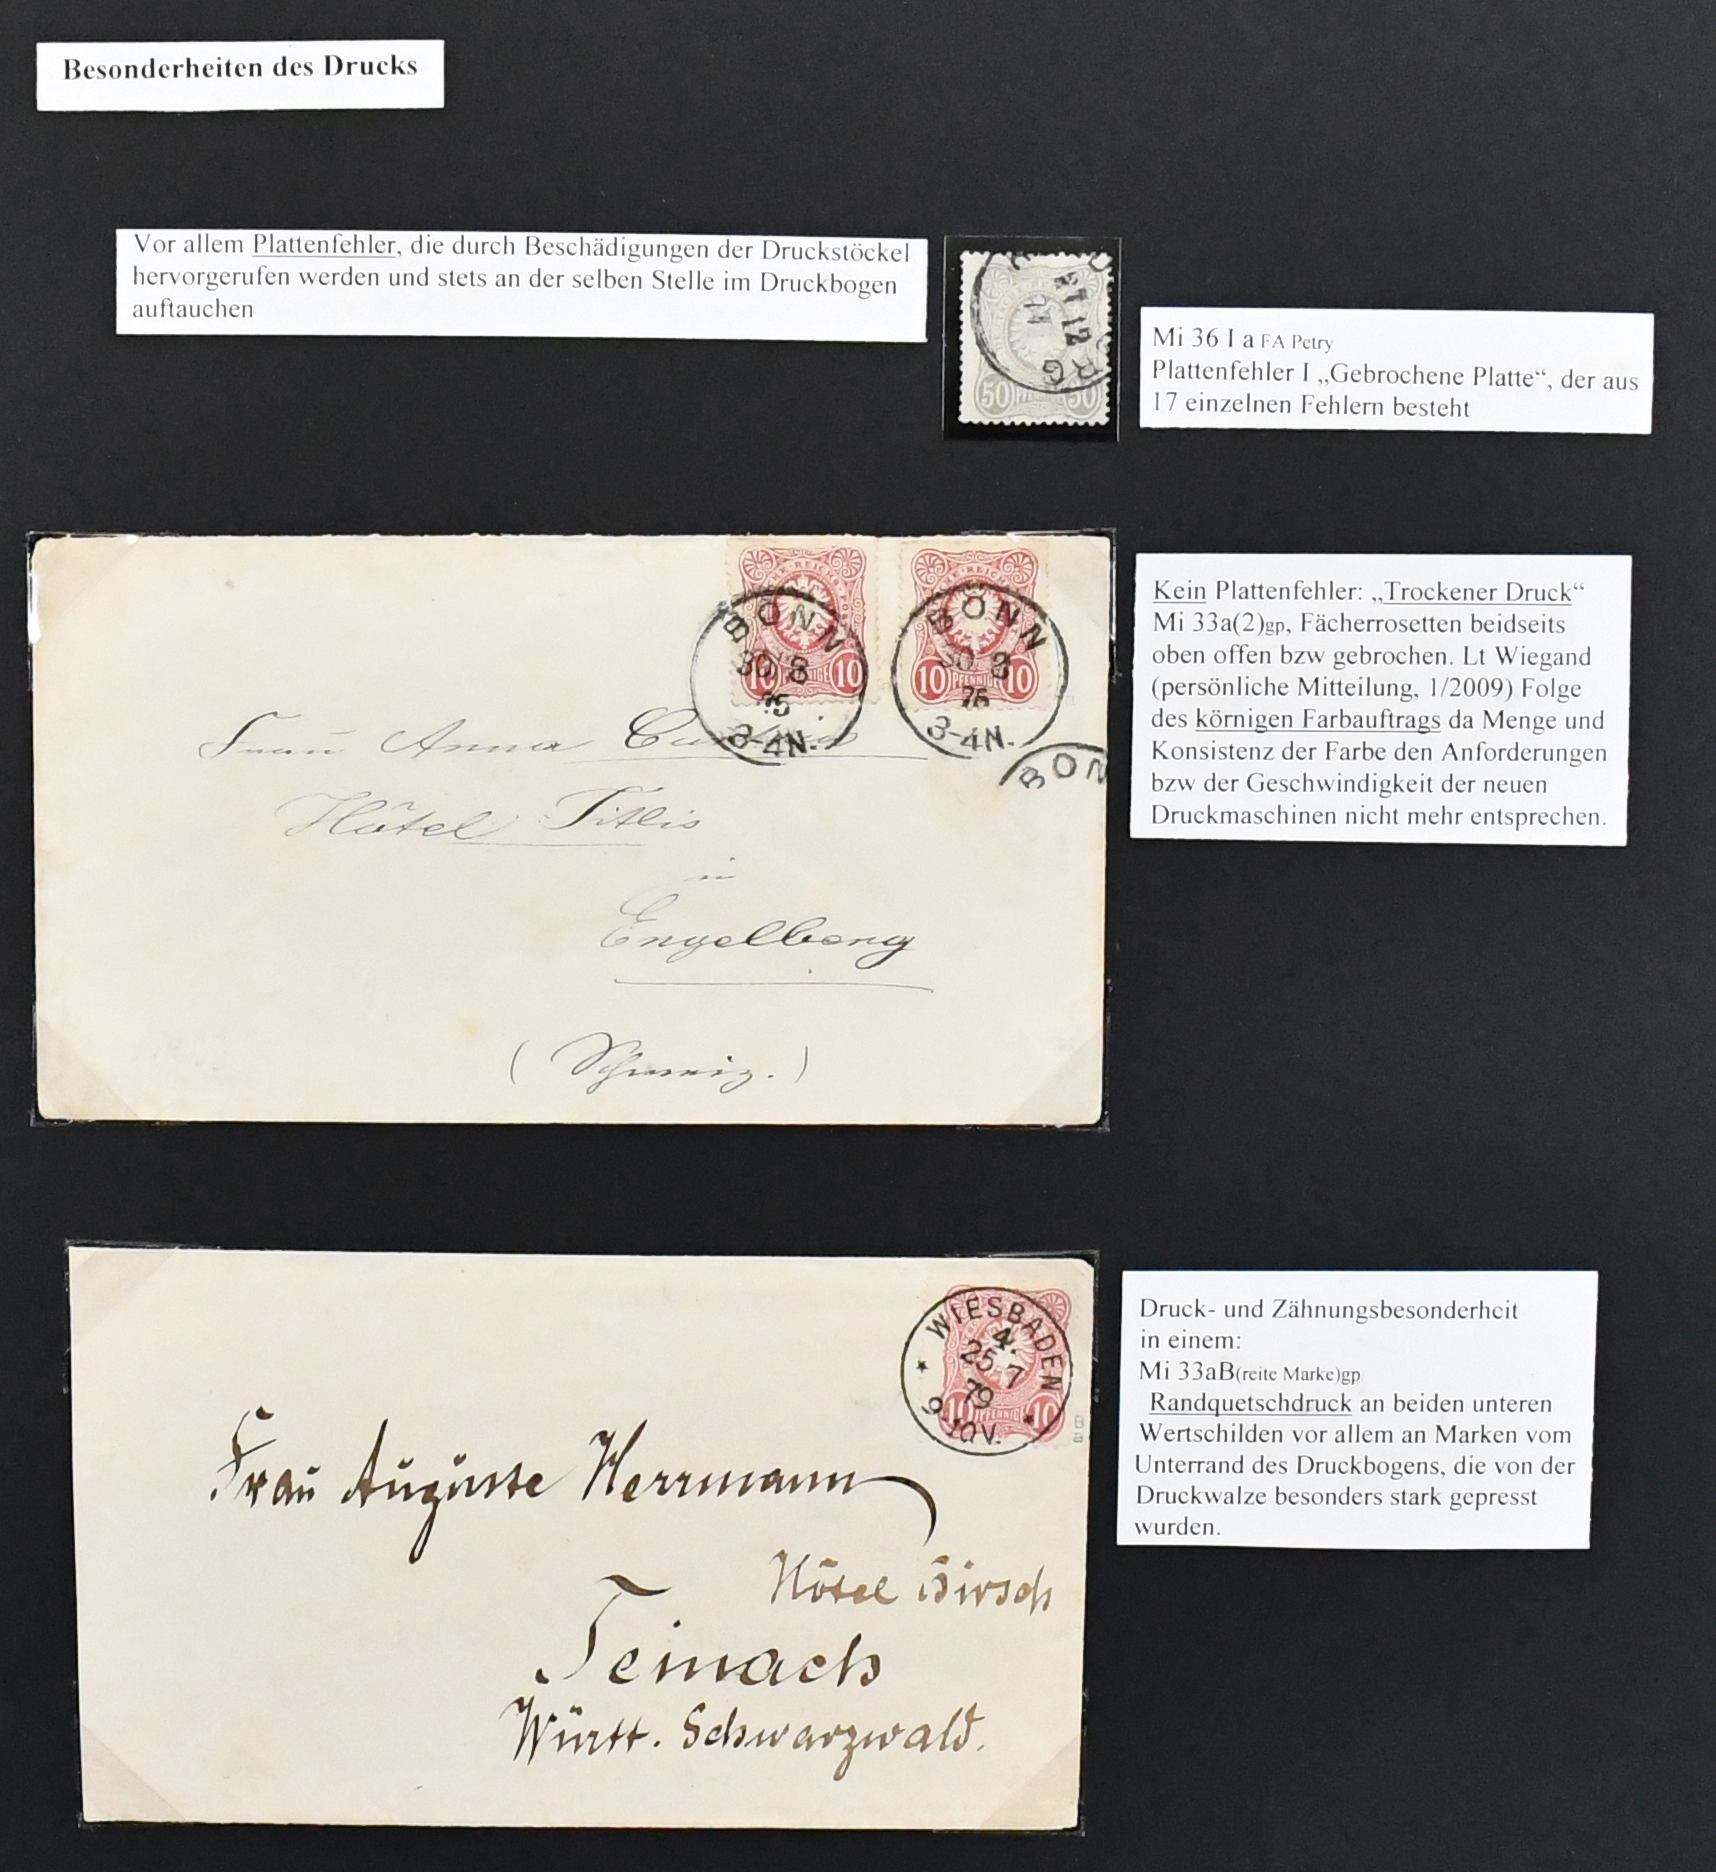 Besonderheiten des Drucks
Vor allem Plattenfehler, die durch Beschädigungen der Druckstöckel
hervorgerufen werden und stets an der selben Stelle im Druckbogen
auftauchen
27 12
50 PFENNIG 50
Mi 36 I a FA Petry
Plattenfehler I „Gebrochene Platte“, der aus
17 einzelnen Fehlern besteht
BONN
30 8
75
3-4N.
10 PFENNIG 10
BONN
30 8
75
3-4N.
10 PFENNIG 10
BON
Frau Anna
Hôtel Titlis
in
Engelberg
(Schweiz.)
Kein Plattenfehler: „Trockener Druck“
Mi 33a(2)gp, Fächerrosetten beidseits
oben offen bzw gebrochen. Lt Wiegand
(persönliche Mitteilung, 1/2009) Folge
des körnigen Farbauftrags da Menge und
Konsistenz der Farbe den Anforderungen
bzw der Geschwindigkeit der neuen
Druckmaschinen nicht mehr entsprechen.
WIESBADEN
4.
25 7
79
9-10V.
10 PFENNIG 10
B
a
Frau Auguste Herrmann
Hôtel Hirsch
Teinach
Württ. Schwarzwald.
Druck- und Zähnungsbesonderheit
in einem:
Mi 33aB(reite Marke)gp
Randquetschdruck an beiden unteren
Wertschilden vor allem an Marken vom
Unterrand des Druckbogens, die von der
Druckwalze besonders stark gepresst
wurden.